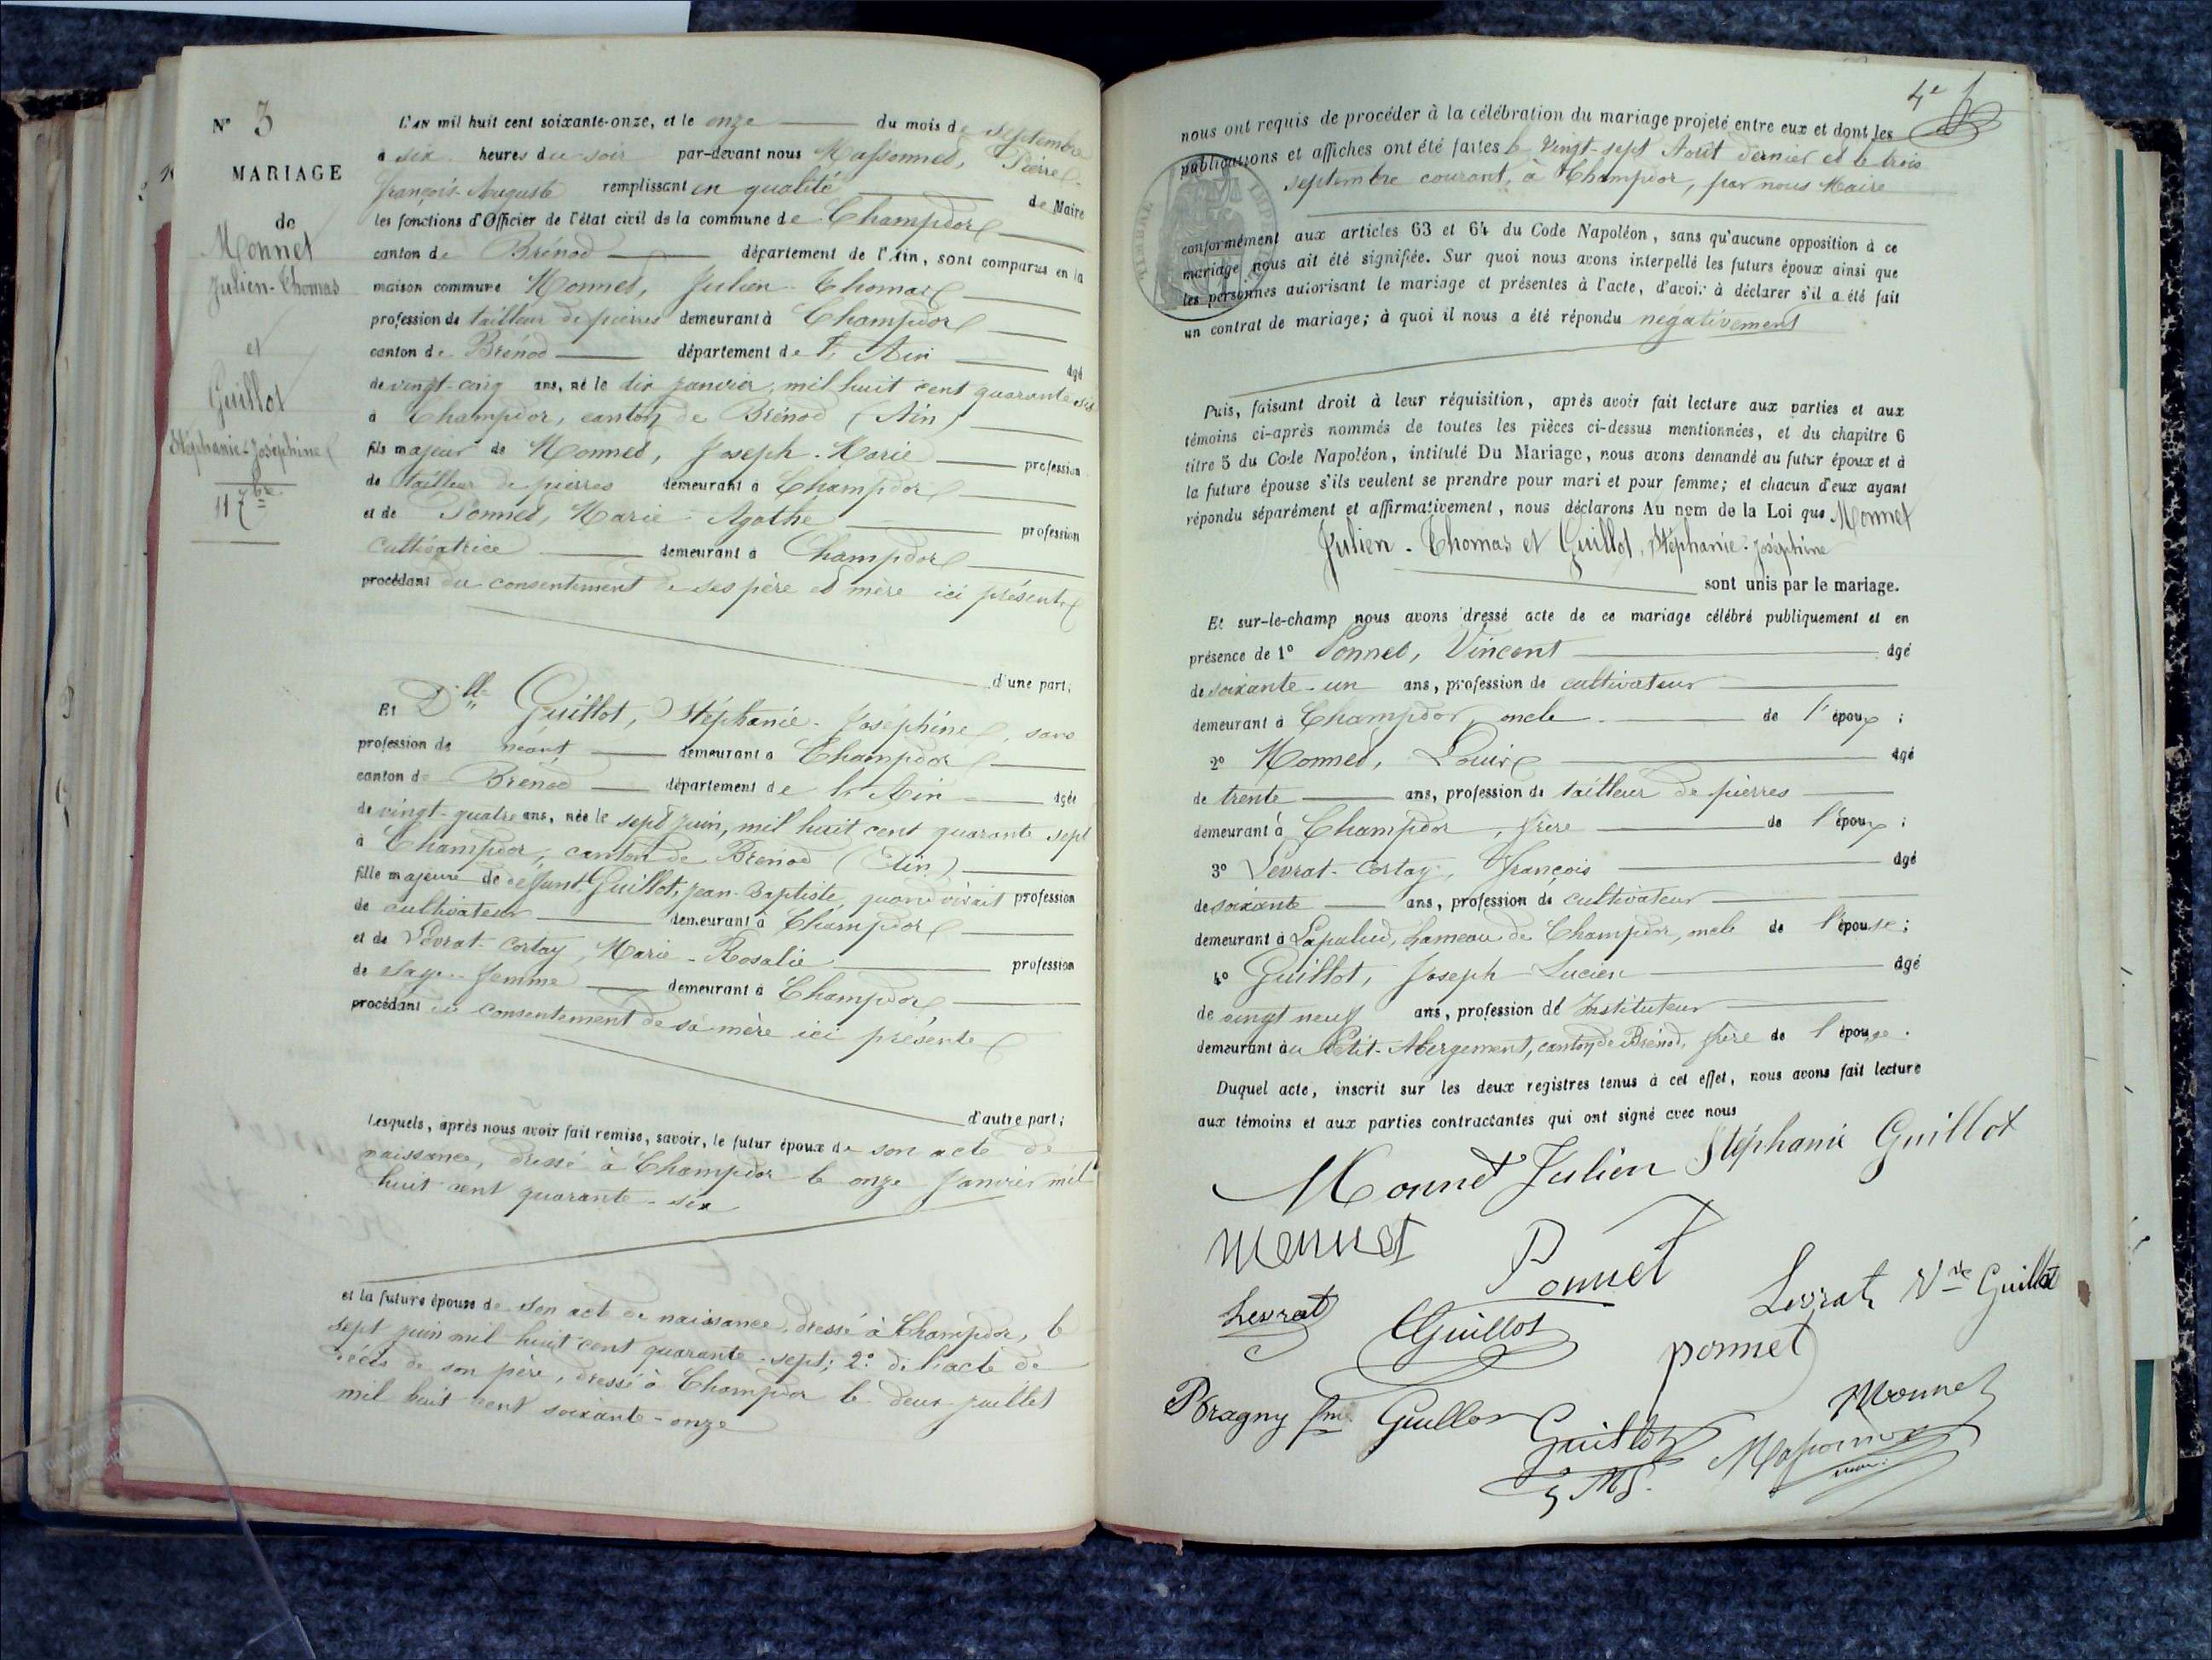 N° 3
MARIAGE
de
Monnet
Julien-Thomas
et
Guillot
Stéphanie-Joséphine
11 7bre
L'AN mil huit cent soixante-onze, et le onze du mois de septembre
à six heures du soir par-devant nous Massonnet, Pierre-
françois-Auguste remplissant en qualité de Maire
les fonctions d'Officier de l'état civil de la commune de Champdor
canton de Brénod département de l'Ain, sont comparus en la
maison commune Monnet, Julien-Thomas
profession de tailleur de pierres demeurant à Champdor
canton de Brénod département de l'Ain âgé
de vingt-cinq ans, né le dix janvier, mil huit cent quarante-six
à Champdor, canton de Brénod (Ain)
fils majeur de Monnet, Joseph-Marie profession
de tailleur de pierres demeurant à Champdor
et de Ponnet, Marie-Agathe profession
cultivatrice demeurant à Champdor
procédant du consentement de ses père et mère ici présents
d'une part;
Et Dlle Guillot, Stéphanie-Joséphine, sans
profession de néant demeurant à Champdor
canton de Brénod département de l'Ain âgée
de vingt-quatre ans, née le sept juin, mil huit cent quarante sept
à Champdor, canton de Brénod (Ain)
fille majeure de deffunt Guillot, Jean-Baptiste, quand vivait profession
de cultivateur demeurant à Champdor
et de Levrat-Cortay, Marie-Rosalie profession
de sage-femme demeurant à Champdor
procédant du consentement de sa mère ici présente
d'autre part;
Lesquels, après nous avoir fait remise, savoir, le futur époux de son acte de
naissance, dressé à Champdor le onze Janvier mil
huit cent quarante-six
et la future épouse de son acte de naissance, dressé à Champdor, le
sept juin mil huit cent quarante-sept; 2° de l'acte de
décès de son père, dressé à Champdor le deux juillet
mil huit cent soixante-onze
4e
nous ont requis de procéder à la célébration du mariage projeté entre eux et dont les
publications et affiches ont été faites le vingt-sept Août dernier et le trois
septembre courant, à Champdor, par nous Maire
TIMBRE IMPÉRIAL
conformément aux articles 63 et 64 du Code Napoléon, sans qu'aucune opposition à ce
mariage nous ait été signifiée. Sur quoi nous avons interpellé les futurs époux ainsi que
les personnes autorisant le mariage et présentes à l'acte, d'avoir à déclarer s'il a été fait
un contrat de mariage; à quoi il nous a été répondu négativement
Puis, faisant droit à leur réquisition, après avoir fait lecture aux parties et aux
témoins ci-après nommés de toutes les pièces ci-dessus mentionnées, et du chapitre 6
titre 5 du Code Napoléon, intitulé Du Mariage, nous avons demandé au futur époux et à
la future épouse s'ils veulent se prendre pour mari et pour femme; et chacun d'eux ayant
répondu séparément et affirmativement, nous déclarons Au nom de la Loi que Monnet
Julien-Thomas et Guillot, Stéphanie-Joséphine
sont unis par le mariage.
Et sur-le-champ nous avons dressé acte de ce mariage célébré publiquement et en
présence de 1° Ponnet, Vincent âgé
de soixante-un ans, profession de cultivateur
demeurant à Champdor, oncle de l'époux;
2° Monnet, Louis âgé
de trente ans, profession de tailleur de pierres
demeurant à Champdor, frère de l'époux;
3° Levrat-Cortay, François âgé
de soixante ans, profession de cultivateur
demeurant à Lapalud, hameau de Champdor, oncle de l'épouse;
4° Guillot, Joseph-Lucien âgé
de vingt neuf ans, profession de Instituteur
demeurant au Petit-Abergement, canton de Brénod, frère de l'épouse.
Duquel acte, inscrit sur les deux registres tenus à cet effet, nous avons fait lecture
aux témoins et aux parties contractantes qui ont signé avec nous
Monnet Julien Stéphanie Guillot
Monnet Ponnet
Levrat Guillot Levrat Vve Guillot
ponnet
Bragny fme Guillot Monnet
Guillot Massonnet
maire